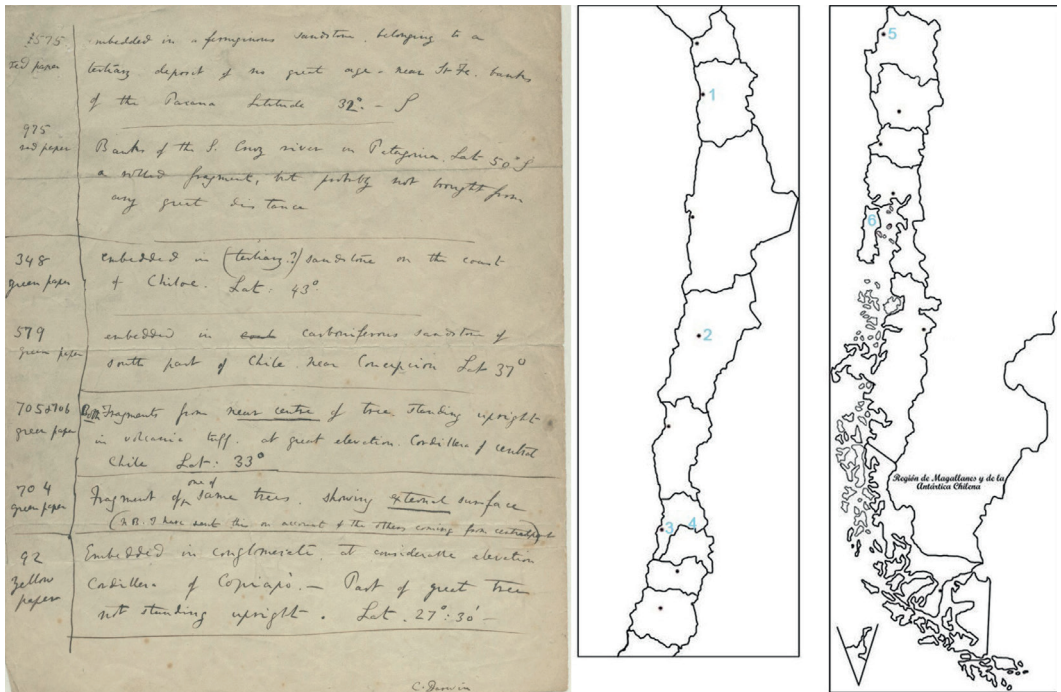 1575
red paper
embedded in a ferruginous sandstone, belonging to a
tertiary deposit of no great age - near St Fe. banks
of the Parana Latitude 32° - S
975
red paper
Banks of the S. Cruz river in Patagonia. Lat 50° S
a rolled fragment, but probably not brought from
any great distance
348
green paper
embedded in (tertiary?) sandstone on the coast
of Chiloe. Lat: 43°
579
green paper
embedded in carboniferous sandstone of
south part of Chile. near Concepcion Lat 37°
705 & 706
green paper
Fragments from near centre of tree, standing upright
in volcanic tuff. at great elevation. Cordillera of central
Chile Lat: 33°
704
green paper
Fragment of one of same trees. showing external surface
(N.B. I have sent this on account of the others coming from central
92
yellow
paper
Embedded in conglomerate, at considerable elevation
Cordillera of Copiapò. - Part of great trees
not standing upright. Lat. 27°: 30' -
C. Darwin
1
2
3
4
5
6
Región de Magallanes y de la
Antártica Chilena